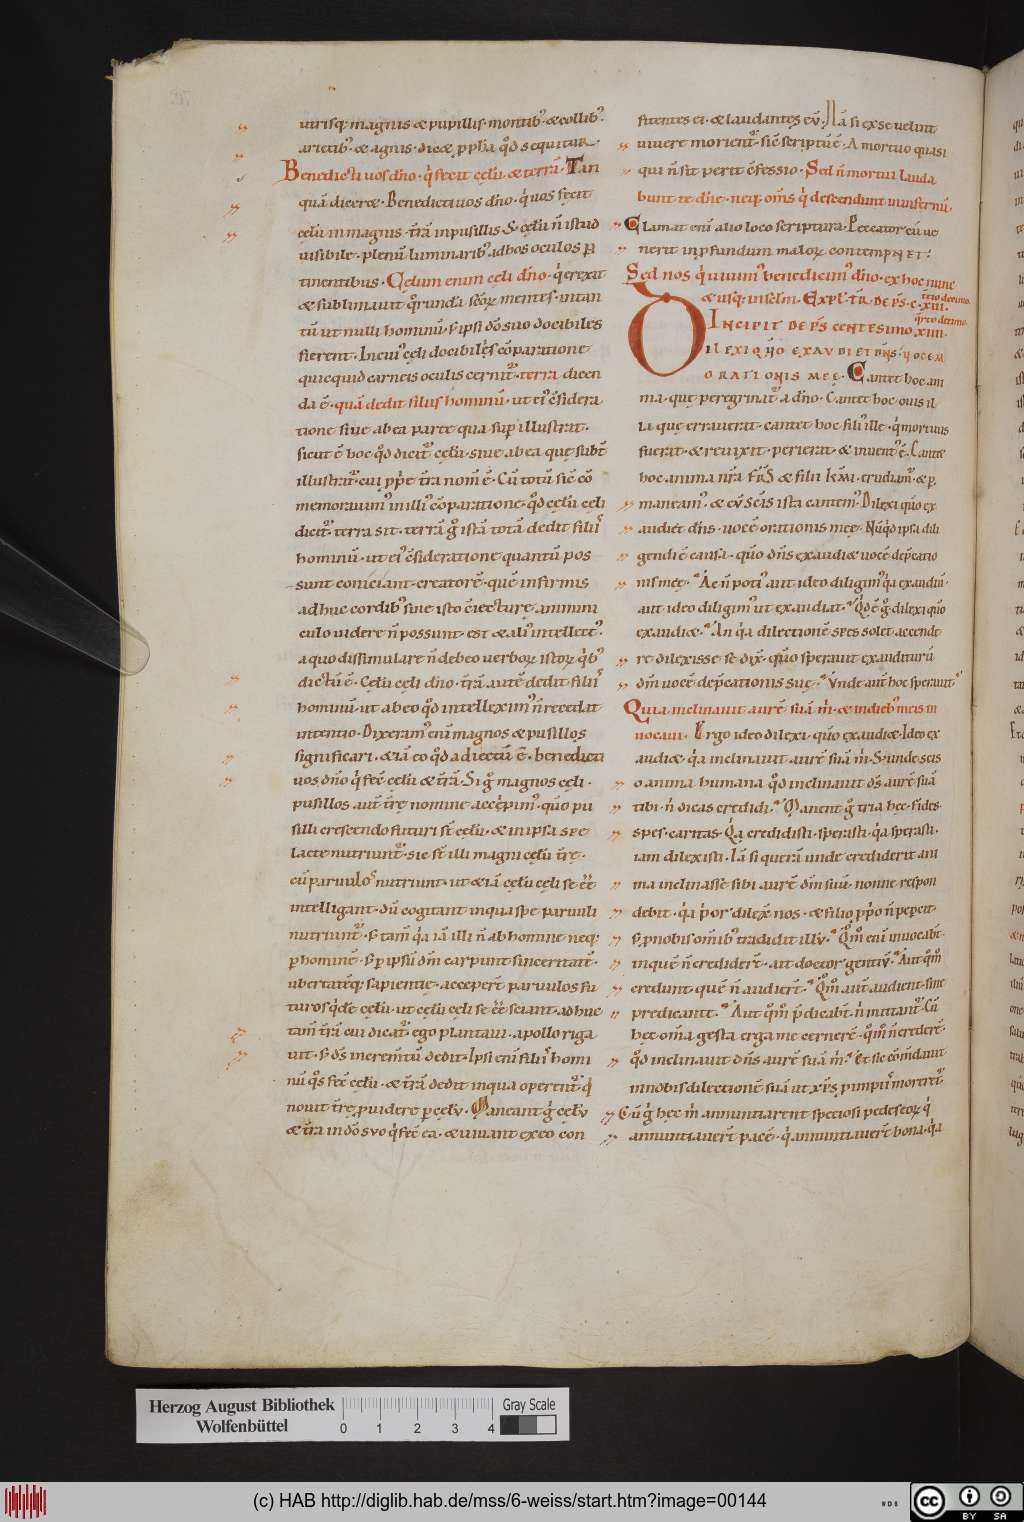 utrisq; magnis & pupillis. montib; & collib;
arietib; & agnis. dic& p̱pḣa qđ sequitur.
Benedicti uos dn̄o. qͥ fecit cęlū. & terrā. Tan
quā dicer&. Benedicti uos dn̄o. qͥ uos fecit
cęlū in magnis. t̄rā in pusillis. S; cęlū n̄ istud
uisibile. plenū luminarib; ad hos oculos p̱
tinentibus. Cęlum enim cęli dn̄o. qͥ erexit
& sublimauit quorunda scōꝝ mentes. in tan
tū ut nulli hominū. s; ipsi dō suo docibiles
fierent. In cui; cęli docibilēs cōparatione
quicquid carneis oculis cernit̄. terra dicen
da ē. quā dedit filiis hominū. ut ei; c̄sidera
tione siue ab ea parte qua sup̱ illustrat.
sicut ē hoc qđ dicit̄ cęlū. siue ab ea que subt̄
illustrat̄. cui p̱p̱e t̄ra nom̄ ē. Cū totū sic̄ cō
memorauim; in illi; cōparatione. qđ cęlū cęli
dicit̄. terra sit. terrā ḡ istā totā dedit filiis
hominū. ut ei; c̄sideratione quantū pos
sunt coniciant creatorē. quē infirmis
adhuc cordib; sine isto c̄iecturę ammini
culo uidere n̄ possunt. est & ali; intellect;
a quo dissimulare n̄ debeo uerboꝝ istoꝝ qͥb;
dictū ē. Cęlū cęli dn̄o. t̄rā autē dedit filiis
hominū. ut ab eo qđ intellexim; n̄ recedat
intentio. Dixeram; enī magnos & pusillos
significari. & iā eo qđ adiectū ē. benedicti
uos dn̄o qͥ fec̄ cęlū & t̄rā. Si ḡ magnos cęli.
pusillos aut̄ t̄rę nomine accepim;. qm̄o pu
silli crescendo futuri st̄ cęlū. & in ipsa spe
lacte nutriunt̄. sic st̄ illi magni cęlū t̄rę.
cū paruulos nutriunt. ut & iā cęlū cęli se ēē
intelligant. dū cogitant in qua spe paruuli
nutriunt̄. s; tam̄ qͣa iā illi n̄ ab homine neq;
p̱ hominē. s; p̱ ipsū dm̄ carpunt sinceritatē.
ubertatēq; sapientię. accepert̄ paruulos fu
turos qͥdē cęlū. ut cęlū cęli se ēē sciant. adhuc
tam̄ t̄rā cui dicat̄. ego plantaui. apollo riga
uit. s; dˢ increm̄tū dedit. Ipsi enī filiis homi
nū qͦs fec̄ cęlū. & t̄rā dedit in qua operent̄. qͥ
nouit t̄rę p̱uidere p̱ cęlū. Maneant ḡ cęlū
& t̄ra in dō suo qͥ fec̄ ea. & uiuant ex eo con
fitentes ei. & laudantes eū. Nā si ex se uelint
uiuere morient̄. sic̄ scriptū ē. A mortuo quasi
qui n̄ sit perit c̄fessio. Sed n̄ mortui lauda
bunt te dn̄e. neq; om̄s qͥ descendunt in infernū.
Clamat enī alio loco scriptura. Peccator cū ue
nerit in p̱fundum maloꝝ contempnet.
Sed nos qͥ uiuim; benedicim; dn̄o. ex hoc nunc
& usq; in scl̄m. Expl̄. tr̄. de ps̄. c. xiii.
tercio decimo.
Incipit de ps̄ centesimo. xiiii.
qͣrto decimo.
Dilexi qm̄o exaudiet dn̄s. uocem
orationis meę. Cantet hoc ani
ma. quę peregrinat̄ a dn̄o. Cantet hoc ouis il
la quę errauerat. cantet hoc fili; ille. qͥ mortuus
fuerat. & reuixit. perierat. & inuent; ē. Cantet
hoc anima nr̄a frs̄ & filii kmi. erudiam; & p̱
maneam;. & cū scīs ista cantem;. Dilexi qm̄o ex
audiet dn̄s. uocē orationis meę. Nūqͥd ipsa dili
gendi ē causa. qm̄o dn̄s exaudi& uocē dep̄catio
nis meę. Ac n̄ poti; aut ideo diligim; qͣa exaudiit.
aut ideo diligim; ut exaudiat. Qͥd ē ḡ. dilexi qm̄o
exaudi&. An qͣa dilectionē spes solet accende
re dilexisse se dix̄. qm̄o sperauit exauditurū
dm̄ uocē dep̄cationis suę. Unde aut̄ hoc sperauit.
Quia inclinauit aurē suā m̄. & in dieb; meis in
uocaui. Ergo ideo dilexi. qm̄o exaudi&. Ideo ex
audi&. qͣa inclinauit aurē suā m̄. S; unde scis
o anima humana qđ inclinauit dˢ. aurē suā
tibi. n̄ dicas credidi. Manent ḡ tria hec. fides.
spes. caritas. Qͣa credidisti. sperasti. qͣa sperasti.
iam dilexisti. Iā si querā unde crediderit ani
ma inclinasse sibi aurē dm̄ suū. nonne respon
debit. qͣa pͥor dilex̄ nos. & filio p̱p̱o n̄ peꝑcit.
s; p̱ nobis om̄ib; tradidit illū. Qm̄o enī inuocabt̄
in quē n̄ credidert̄. ait doctor gentiū. Aut qm̄o
credunt quē n̄ audiert̄. Qm̄o aut̄ audient sine
predicante. Aut qm̄o p̄dicabt̄. n̄ mittant̄. Cū
hec om̄a gesta erga me cernerē. qm̄o n̄ crederē.
qđ inclinauit dn̄s aurē suā m̄. Et sic cōm̄dauit
in nobis dilectionē suā ut xp̄s p̱ impiis moreret̄.
Cū ḡ hec m̄ annuntiarent speciosi pedes eoꝝ qͥ
annuntiauert̄ pacē. qͥ annuntiauert̄ bona. qͣa
Herzog August Bibliothek
Wolfenbüttel
0 1 2 3 4
Gray Scale
(c) HAB http://diglib.hab.de/mss/6-weiss/start.htm?image=00144
cc BY SA